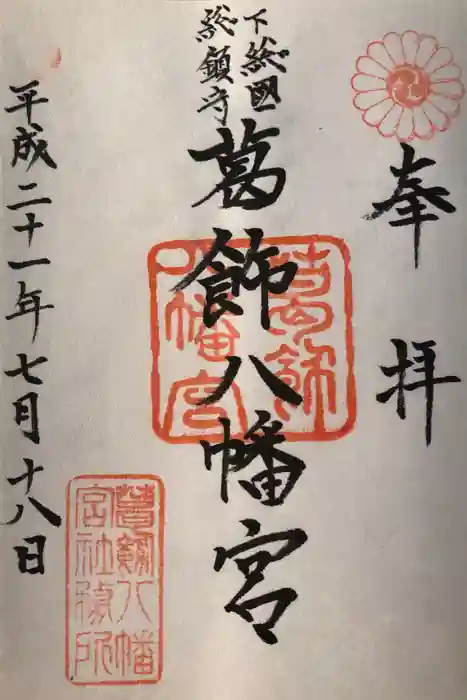 奉拝
下総國
総鎮守
葛飾八幡宮
葛飾
八幡宮
平成二十一年七月十八日
葛飾八幡
宮社務所